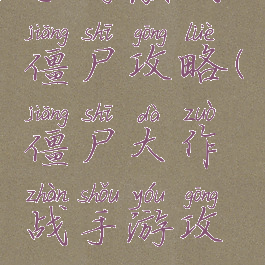 jiāng shī gōng lüè
僵尸攻略(
jiāng shī dà zuò
僵尸大作
zhàn shǒu yóu gōng
战手游攻